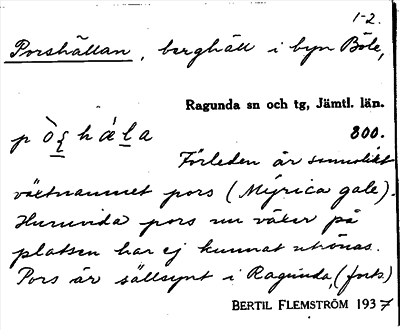 1-2.
Porshällan, berghäll i byn Böle,
Ragunda sn och tg, Jämtl. län.
p ò ș h á l a 800.
Förleden är sannolikt
växtnamnet pors (Myrica gale).
Huruvida pors nu växer på
platsen har ej kunnat utrönas.
Pors är sällsynt i Ragunda, (forts)
BERTIL FLEMSTRÖM 1937